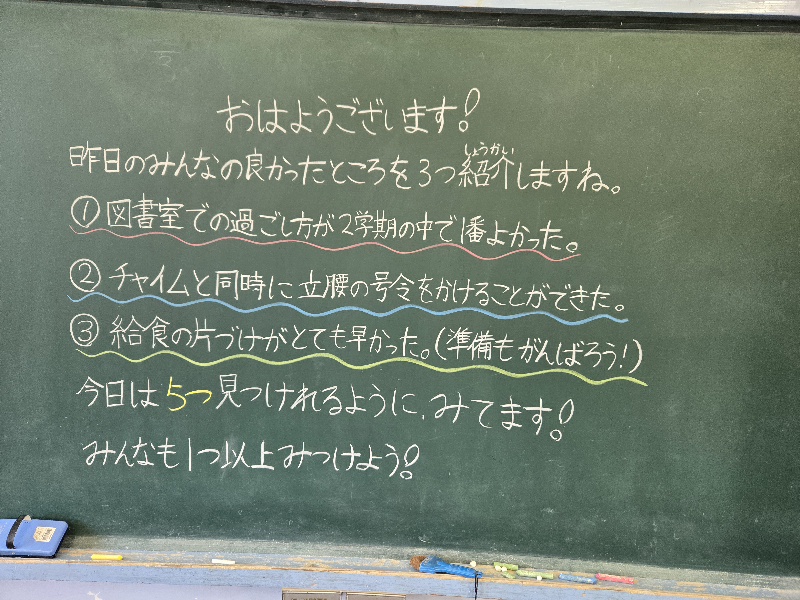 おはようございます!
昨日のみんなの良かったところを3つ紹介しますね。
しょうかい
①図書室での過ごし方が2学期の中で1番よかった。
②チャイムと同時に立腰の号令をかけることができた。
③給食の片づけがとても早かった。(準備もがんばろう!)
今日は5つ見つけれるように、みてます!
みんなも1つ以上みつけよう!